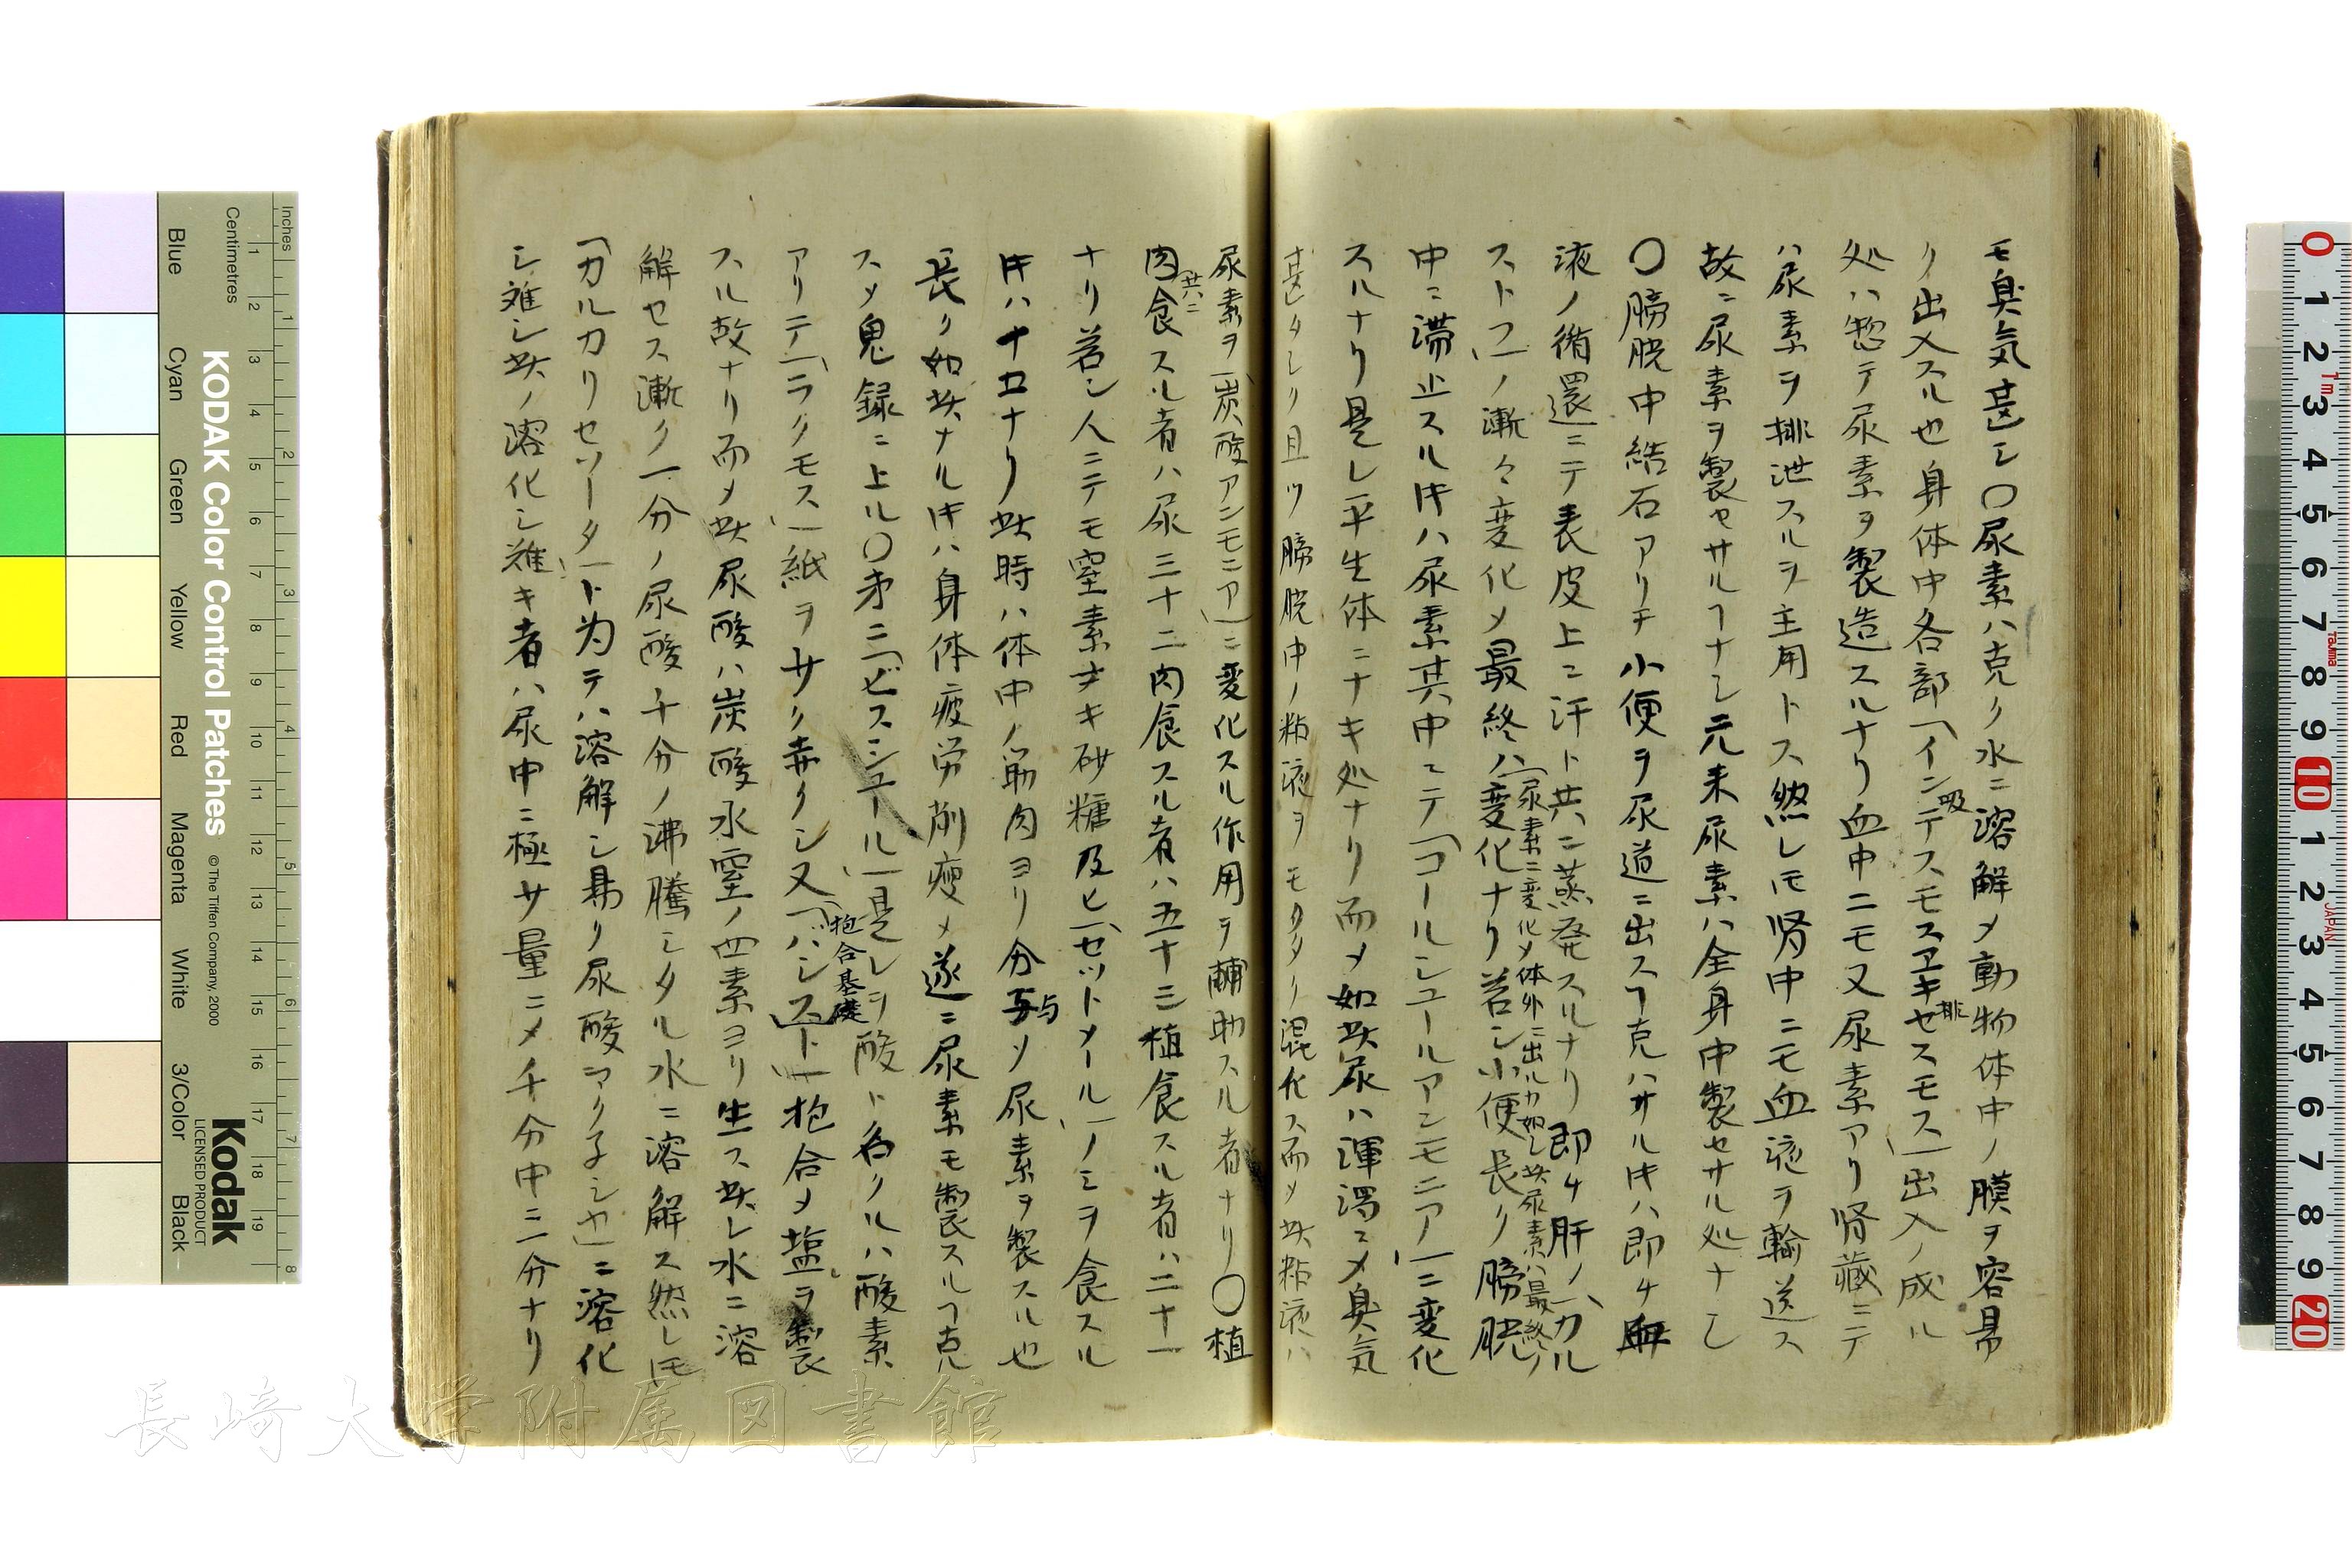 モ臭気甚シ〇尿素ハ克ク水ニ溶解メ動物体中ノ膜ヲ容易
ク出入スル也身体中各部「インデスモスヱキセスモス」出入ノ成ル
吸
排
処ハ惣テ尿素ヲ製造スルナリ血中ニモ又尿素アリ腎蔵ニテ
ハ尿素ヲ排泄スルヲ主用トス然レ𪜈腎中ニモ血液ヲ輸送ス
故ニ尿素ヲ製セサルヿナシ元来尿素ハ全身中製セサル処ナシ
〇膀胱中結石アリテ小便ヲ尿道ニ出スヿ克ハサル𪜈ハ即チ血
液ノ循環ニテ表皮上ニ汗ト共ニ蒸発スルナリ即チ肝ノ「カル
ストフ」ノ漸々変化メ最終ハ変化ナリ若シ小便長ク膀胱
「尿素ニ変化メ体外ニ出ルカ如シ此尿素ハ最終ノ
中ニ滞止スル𪜈ハ尿素其中ニテ「コールシユールアンモニア」ニ変化
スルナリ是レ平生体ニナキ処ナリ而メ如此尿ハ渾濁ニメ臭気
甚タシク且ツ膀胱中ノ粘液ヲモクタク混化ス而メ此粘液ハ
尿素ヲ「炭酸アンモニア」ニ変化スル作用ヲ輔助スル者ナリ〇植
肉食スル者ハ尿三十二肉食スル者ハ五十三植食スル者ハ二十一
共ニ
ナリ若シ人ニテモ窒素ナキ砂糖及ヒ「セットメール」ノミヲ食スル
𪜈ハ十五ナリ此時ハ体中ノ筋肉ヨリ分与ソ尿素ヲ製スル也
与
長ク如此ナル𪜈ハ身体疲労削痩メ遂ニ尿素モ製スルヿ克
スメ鬼録ニ上ル〇第二「ピスシユール」是レヲ酸ト名クルハ酸素
アリテ「ラクモス」紙ヲサク赤クシ又「ハシスト」抱合メ塩ヲ製
抱合基礎
スル故ナリ而メ此尿酸ハ炭酸水窒ノ四素ヨリ生ス此レ水ニ溶
解セス漸ク一分ノ尿酸千分ノ沸騰シタル水ニ溶解ス然レ𪜈
「カルカリセソーター」ト為テハ溶解シ易ク尿酸マク子シヤ」ニ溶化
シ難シ此ノ溶化シ難キ者ハ尿中ニ極サ量ニメ千分中ニ分ナリ
長崎大学附属図書館
KODAK Color Control Patches
© The Tiffen Company, 2000
Kodak
LICENSED PRODUCT
Inches
Centimetres
1 2 3 4 5 6 7 8 9 10 11 12 13 14 15 16 17 18 19
1 2 3 4 5 6 7 8
Blue
Cyan
Green
Yellow
Red
Magenta
White
3/Color
Black
0 1 2 3 4 5 6 7 8 9 10 1 2 3 4 5 6 7 8 9 20
1m
Tajima
JAPAN